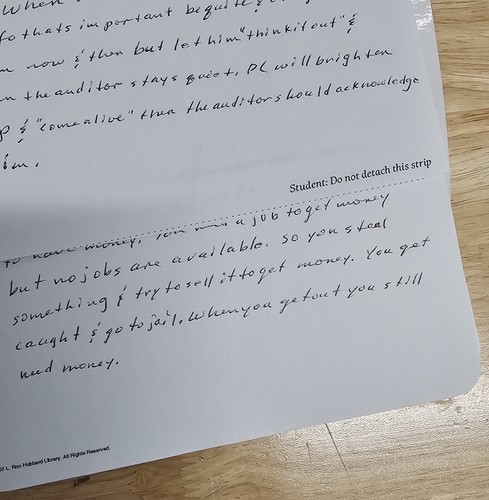 When
fo thats important be quite &
m now & then but let him "think it out" &
n the auditor stays quiet. PC will brighten
p & "come alive" then the auditor should acknowledge
im.
Student: Do not detach this strip
to have money. a job to get money
but no jobs are available. So you steal
something & try to sell it to get money. You get
caught & go to jail. When you get out you still
need money.
07 L. Ron Hubbard Library. All Rights Reserved.